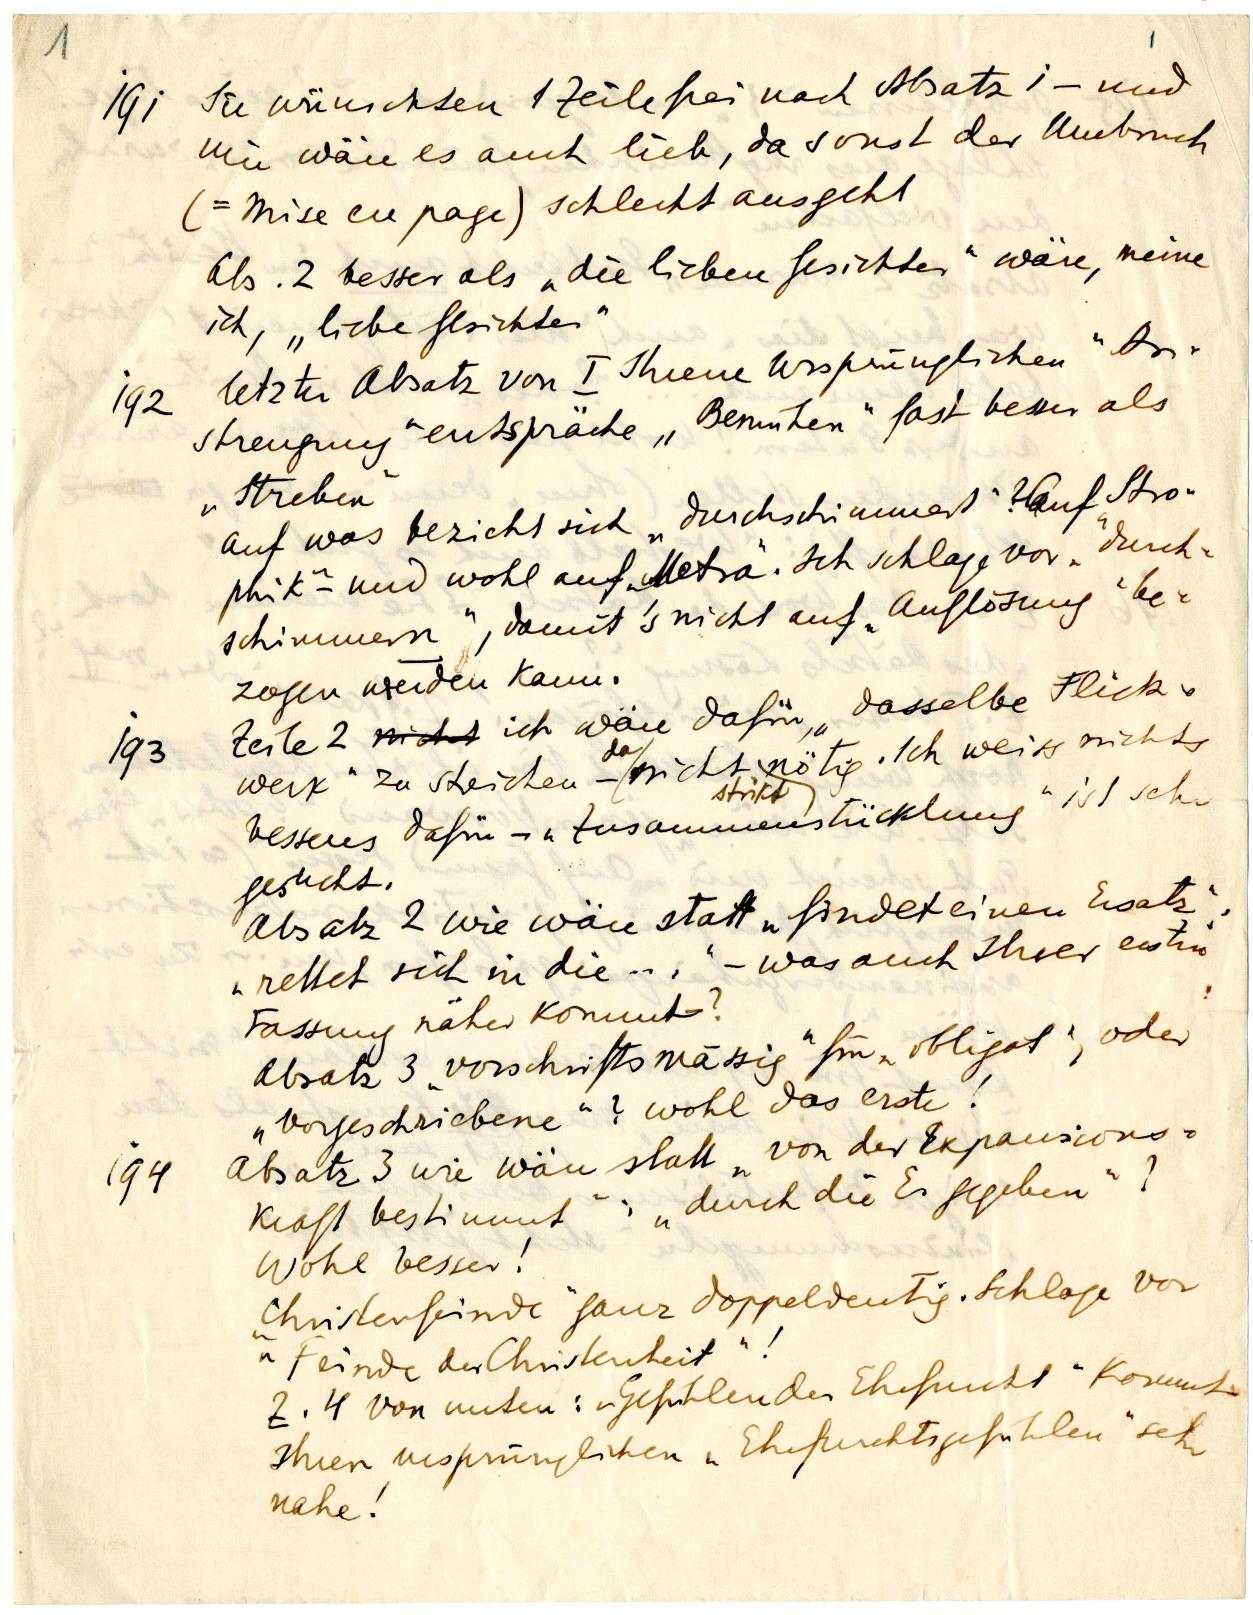 1
1
191 Sie wünschten 1 Zeile frei nach Absatz 1 – und
mir wäre es auch lieb, da sonst der Umbruch
(= Mise en page) schlecht ausgeht
Abs. 2 besser als „die lieben Gesichter" wäre, meine
ich, „liebe Gesichter"
192 letzter Absatz von I Ihrem ursprünglichen "An-
strengung" entspräche „Bemühen" fast besser als
„Streben"
auf was bezieht sich „durchschimmert"? Auf „Stro-
phik" – und wohl auf „Metra". Ich schlage vor „durch-
schimmern", damit's nicht auf „Auflösung" be-
zogen werden kann.
193 Zeile 2 nicht ich wäre dafür, „dasselbe Flick-
werk" zu streichen – da nicht strikt nötig. Ich weiss nichts
besseres dafür – „Zusammenstücklung" ist sehr
gesucht.
Absatz 2 wie wäre statt „findet einen Ersatz":
„rettet sich in die ..." – was auch Ihrer ersten
Fassung näher kommt?
Absatz 3 „vorschriftsmässig" für „obligat", oder
„vorgeschriebene"? wohl das erste!
194 Absatz 3 wie wäre statt „von der Expansions-
kraft bestimmt": „durch die E. gegeben"?
Wohl besser!
„Christenfeinde" ganz doppeldeutig. Schlage vor
„Feinde der Christenheit"!
Z. 4 von unten: „Gefühlen der Ehrfurcht" kommt
Ihren ursprünglichen „Ehrfurchtsgefühlen" sehr
nahe!